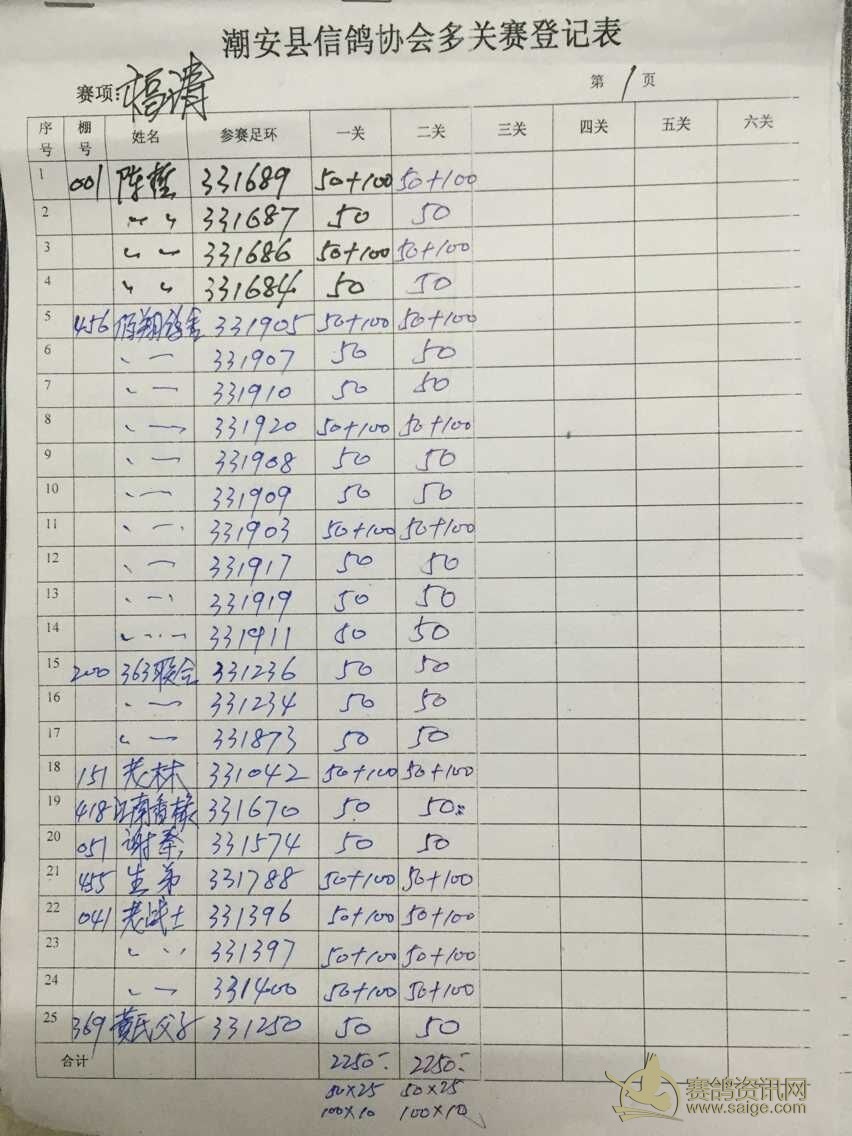 潮安县信鸽协会多关赛登记表
赛项:福清 第1页
序号 棚号 姓名 参赛足环 一关 二关 三关 四关 五关 六关
1 001 陈哲 331689 50+100 50+100
2 〃 〃 331687 50 50
3 〃 〃 331686 50+100 50+100
4 〃 〃 331684 50 50
5 456 331905 50+100 50+100
6 331907 50 50
7 331910 50 50
8 331920 50+100 50+100
9 331908 50 50
10 331909 50 50
11 331903 50+100 50+100
12 331917 50 50
13 331919 50 50
14 331911 50 50
15 200 363联合 331236 50 50
16 331234 50 50
17 331873 50 50
18 151 老林 331042 50+100 50+100
19 418 江南香椽 331670 50 50
20 051 谢奉 331574 50 50
21 455 生弟 331788 50+100 50+100
22 041 老战士 331396 50+100 50+100
23 331397 50+100 50+100
24 331400 50+100 50+100
25 369 黄氏父子 331250 50 50
合计 2250- 2250-
50×25 50×25
100×10 100×10
赛鸽资讯网
www.saige.com